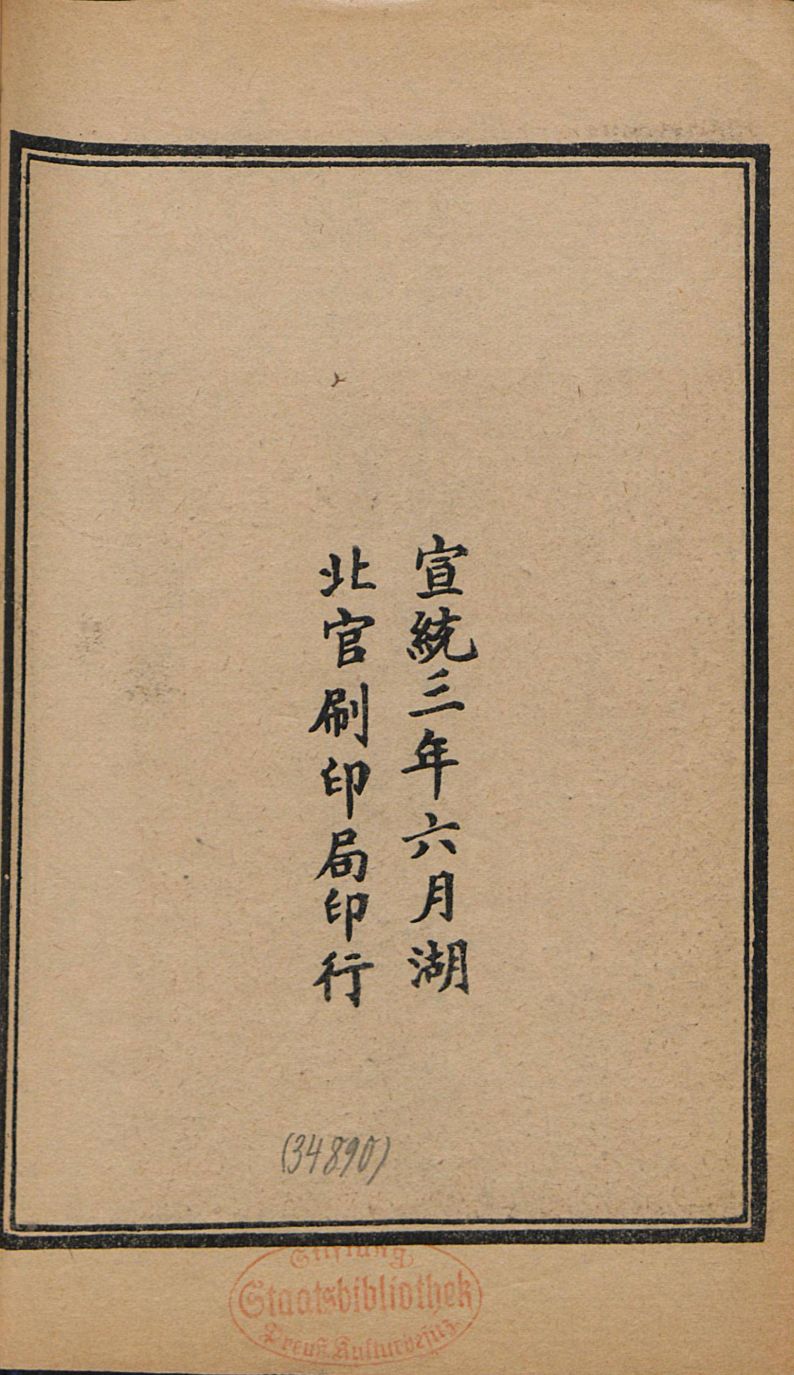 宣統三年六月湖
北官刷印局印行
(34890)
Stiftung
Staatsbibliothek
Preuß. Kulturbesitz